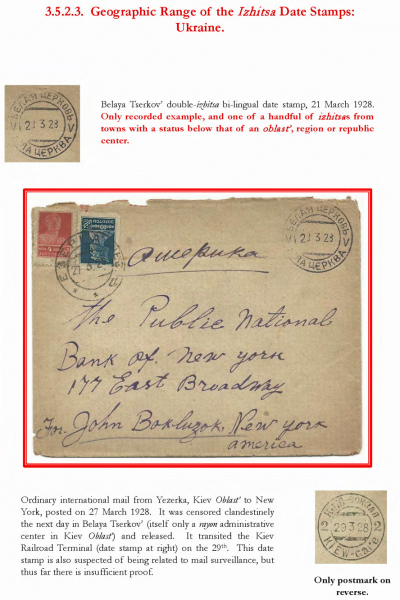 3.5.2.3. Geographic Range of the Izhitsa Date Stamps:
Ukraine.
БЕЛАЯ ЦЕРКОВЬ
V 2 3 28 V
ЛА ЦЕРКВА
Belaya Tserkov' double-izhitsa bi-lingual date stamp, 21 March 1928.
Only recorded example, and one of a handful of izhitsas from
towns with a status below that of an oblast', region or republic
center.
БЕЛАЯ ЦЕРКОВЬ
V 2 3 28 V
ЛА ЦЕРКВА
27 3
Америка
The Public National
Bank of. New york
177 East Broadway
For. John Bokluzok, New york
america
Ordinary international mail from Yezerka, Kiev Oblast' to New
York, posted on 27 March 1928. It was censored clandestinely
the next day in Belaya Tserkov' (itself only a rayon administrative
center in Kiev Oblast') and released. It transited the Kiev
Railroad Terminal (date stamp at right) on the 29th. This date
stamp is also suspected of being related to mail surveillance, but
thus far there is insufficient proof.
2 29 3 28 2
KIEW-Gare
Only postmark on
reverse.